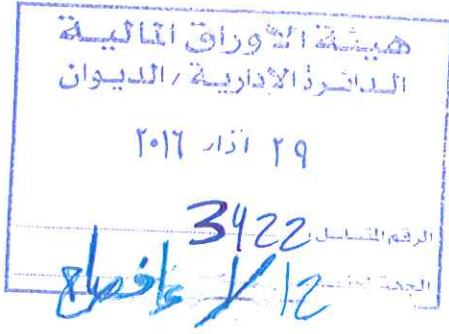 هيئة الأوراق المالية
الدائرة الإدارية / الديوان
٢٩ اذار ٢٠١٦
الرقم المتسلسل 3422
الجهة